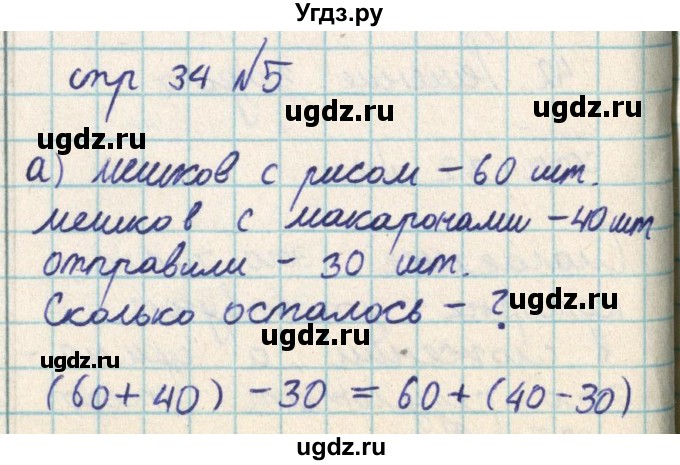 Угдз.ру
стр 34 №5
ugdz.ru
ugdz.ru ugdz.ru
а) мешков с рисом – 60 шт.
мешков с макаронами – 40 шт
отправили – 30 шт.
ugdz.ru ugdz.ru
Сколько осталось – ?
ugdz.ru
(60 + 40) – 30 = 60 + (40 – 30)
ugdz.ru ugdz.ru
ugdz.ru